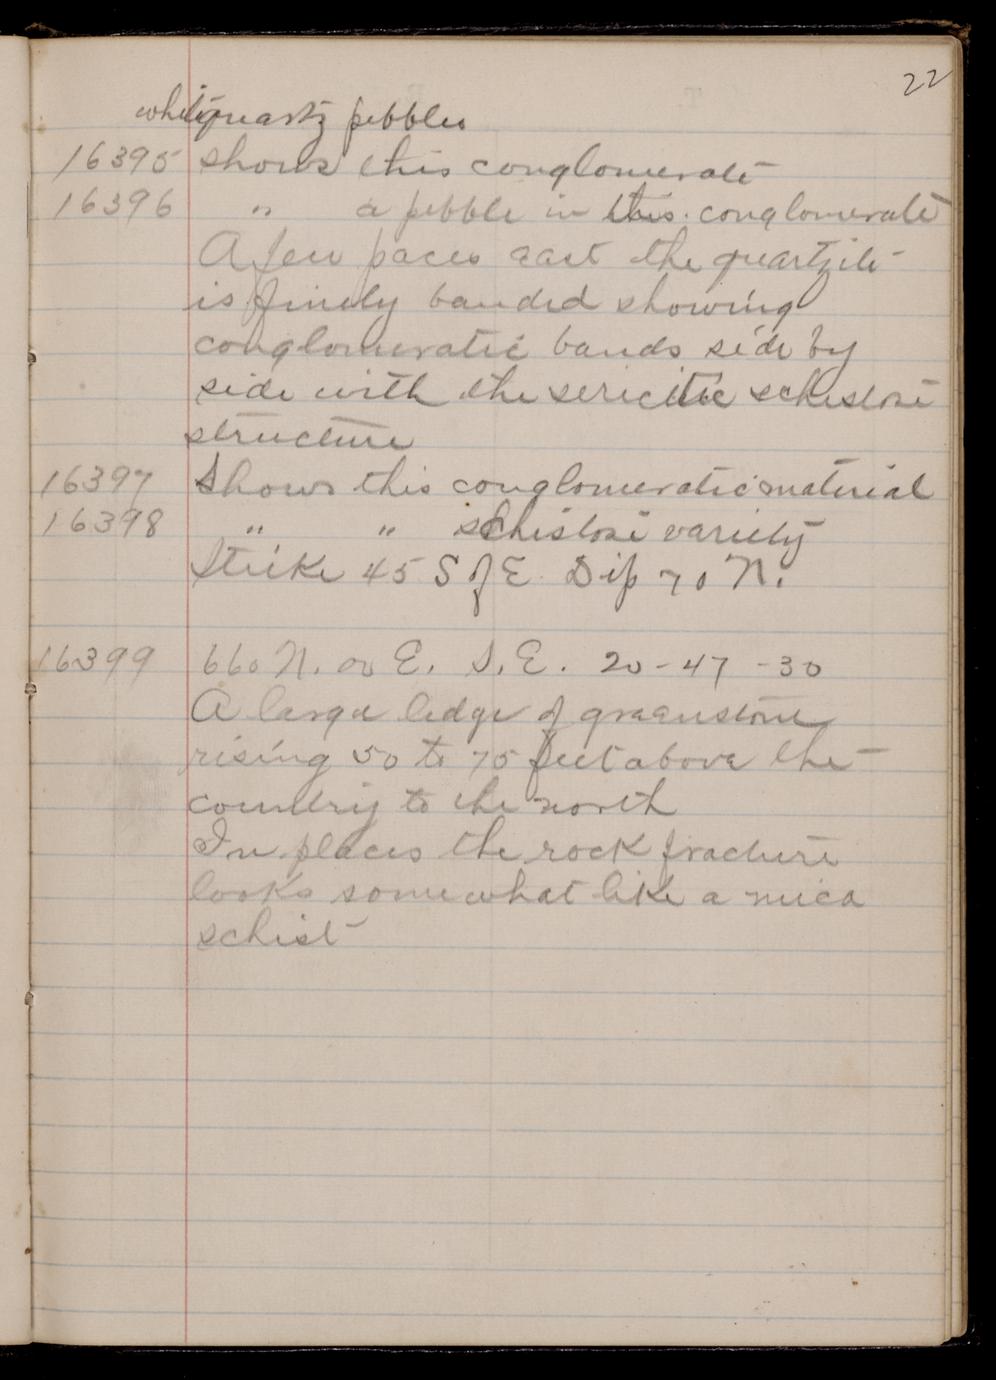 22
white quartz pebbles
16395 shows this conglomerate
16396 " a pebble in this conglomerate
A few paces east the quartzite
is finely banded showing
conglomeratic bands side by
side with the sericitic schistose
structure
16397 Shows this conglomeratic material
16398 " " schistose variety
Strike 45 S of E. Dip 70 N.
16399 660 N. 00 E. S.E. 20-47-30
A large ledge of greenstone
rising 50 to 75 feet above the
country to the north
In places the rock fracture
looks somewhat like a mica
schist